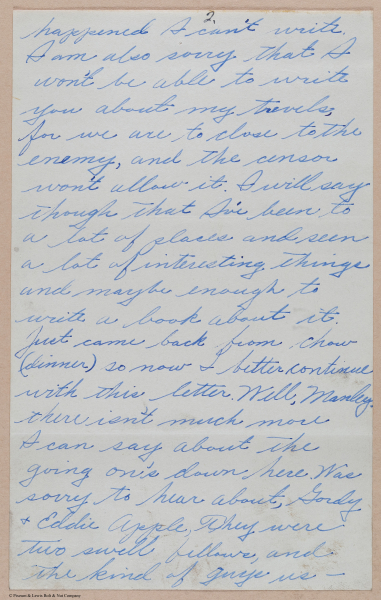 2.
happened I can't write.
I am also sorry that I
won't be able to write
you about my travels,
for we are to close to the
enemy, and the censor
won't allow it. I will say
though that I've been to
a lot of places and seen
a lot of interesting things
and maybe enough to
write a book about it.
Just came back from chow
(dinner) so now I better continue
with this letter. Well, Manley
there isn't much more
I can say about the
going on's down here. Was
sorry to hear about, Gordy
+ Eddie Apple, They were
two swell fellows, and
the kind of guys us -
© Pinnaud & Lewis Bolt & Nut Company